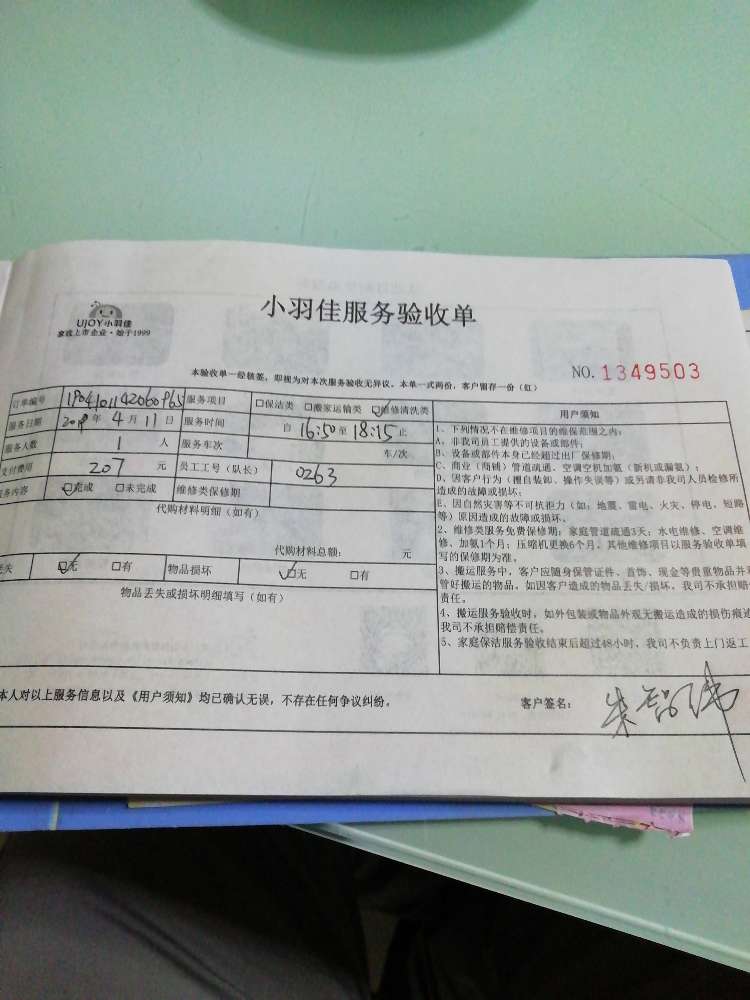 UJOY小羽佳
家政上市企业·始于1999
小羽佳服务验收单
本验收单一经核签，即视为对本次服务验收无异议。本单一式两份，客户留存一份（红）
NO. 1349503
订单编号 服务项目 □保洁类 □搬家运输类 ☑维修清洗类
服务日期 2019年 4月 11日 服务时间 自 16:50 至 18:15 止
服务人数 1 人 服务车次 车/次
支付费用 207 元 员工工号（队长） 0263
服务内容 ☑完成 □未完成 维修类保修期
代购材料明细（如有）
代购材料总额： 元
丢失 ☑无 □有 物品损坏 ☑无 □有
物品丢失或损坏明细填写（如有）
用户须知
1、下列情况不在维修项目的维保范围之内：
A、非我司员工提供的设备或部件；
B、设备或部件本身已经超过出厂保修期；
C、商业（商铺）管道疏通、空调空机加氨（新机或漏氨）；
D、因客户行为（擅自装卸、操作失误等）或另请非我司人员检修所
造成的故障或损坏；
E、因自然灾害等不可抗拒力（如：地震、雷电、火灾、停电、短路
等）原因造成的故障或损坏。
2、维修类服务免费保修期：家庭管道疏通3天；水电维修、空调维
修、加氨1个月；压缩机更换6个月。其他维修项目以服务验收单填
写的保修期为准。
3、搬运服务中，客户应随身保管证件、首饰、现金等贵重物品并
管好搬运的物品。如因客户造成的物品丢失/损坏，我司不承担赔
责任。
4、搬运服务验收时，如外包装或物品外观无搬运造成的损伤痕迹
我司不承担赔偿责任。
5、家庭保洁服务验收结束后超过48小时，我司不负责上门返工
本人对以上服务信息以及《用户须知》均已确认无误，不存在任何争议纠纷。
客户签名：